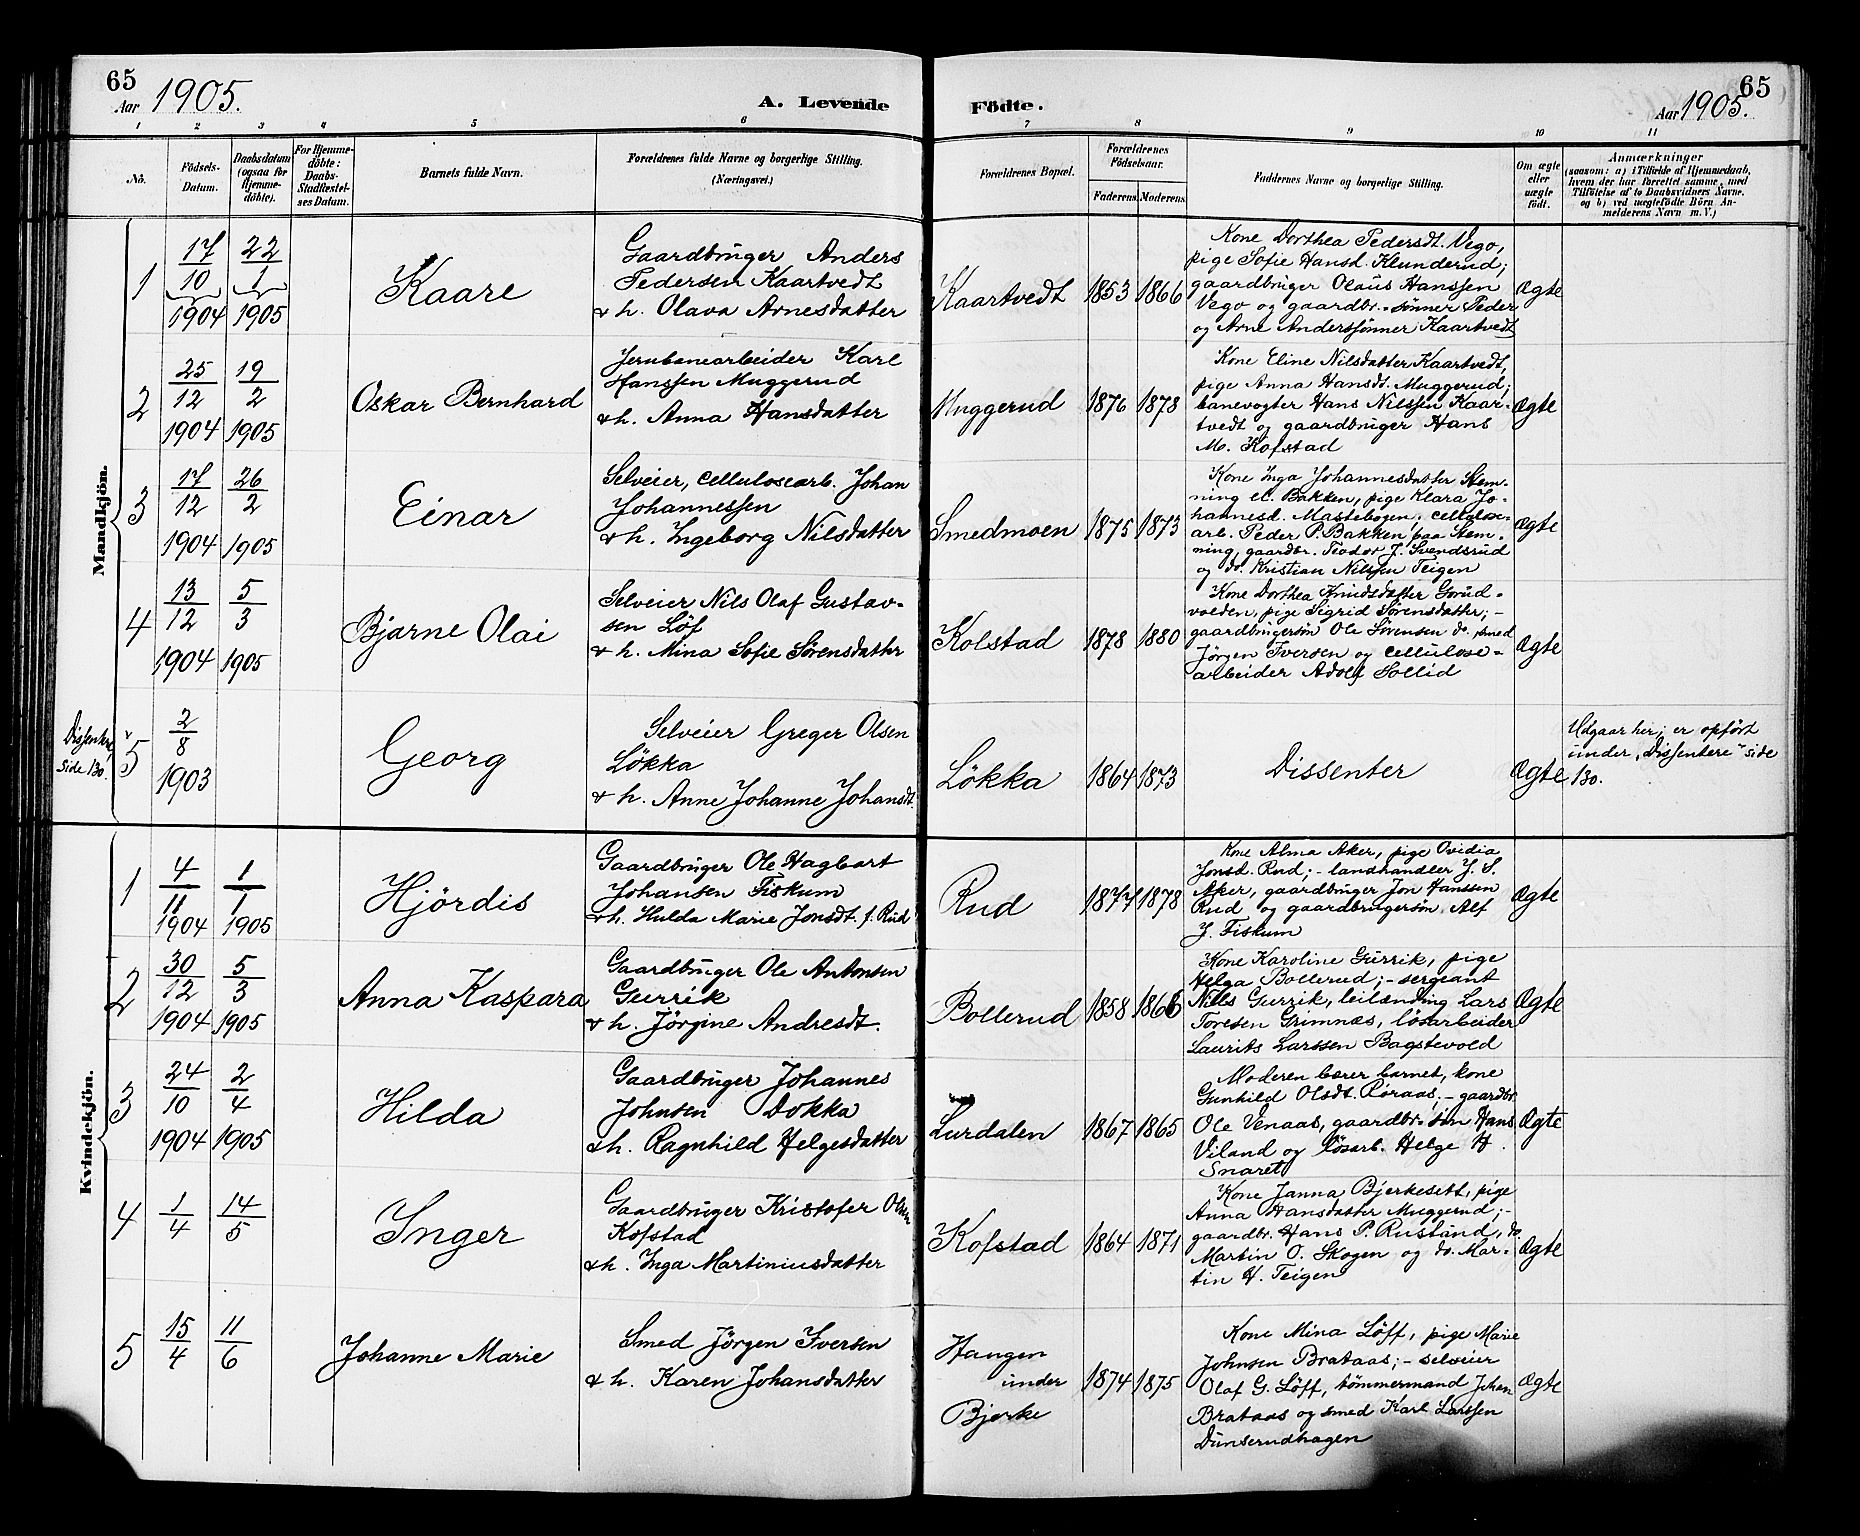 65
Aar 1905.
A. Levende
Födte.
65
Aar 1905.
1
2
3
4
5
6
7
8
9
10
11
No.
Födsels-
Datum.
Daabsdatum
(ogsaa for
Hjemme-
döbte).
For Hjemme-
döbte:
Daabs-
Stadfæstel-
ses Datum.
Barnets fulde Navn.
Forældrenes fulde Navne og borgerlige Stilling.
(Næringsvei.)
Forældrenes Bopæl.
Forældrenes
Födselsaar.
Faderens.
Moderens.
Faddernes Navne og borgerlige Stilling.
Om ægte
eller
uægte
födt.
Anmærkninger
(saasom: a) i Tilfælde af Hjemmedaab,
hvem der har forrettet samme, med
Tilföielse af to Daabsvidners Navne,
og b) ved uægtefödte Börn An-
melderens Navn m. V.)
Mandkjön.
1
17/10 1904
22/1 1905
Kaare
Gaardbruger Anders
Pedersen Kaartvedt
& h. Olava Arnesdatter
Kaartvedt
1853
1866
Kone Dorthea Pedersdt. Vego,
pige Sofie Hansd. Klunderud;
gaardbruger Olaus Hanssen
Vego og gaardbr.-sønner Peder
og Arne Anderssønner Kaartvedt
Ægte
2
25/12 1904
19/2 1905
Oskar Bernhard
Jernbanearbeider Karl
Hanssen Muggerud
& h. Anna Hansdatter
Muggerud
1876
1878
Kone Eline Nilsdatter Kaartvedt,
pige Anna Hansdt. Muggerud;
banevogter Hans Nilssen Kaar-
tvedt og gaardbruger Hans
M. Kofstad
Ægte
3
17/12 1904
26/2 1905
Einar
Selveier, cellulosearb. Johan
Johannessen
& h. Ingeborg Nilsdatter
Smedmoen
1875
1873
Kone Inga Johannesdatter Stem-
ning el. Bakken, pige Klara Jo-
hannesd. Mastebogen; cellulose-
arb. Peder P. Bakken paa Stem-
ning, gaardbr. Teodor J. Svendsrud
og do. Kristian Nilssen Teigen
Ægte
4
13/12 1904
5/3 1905
Bjarne Olai
Selveier Nils Olaf Gustav-
sen Löf
& h. Mina Sofie Sörensdatter
Kolstad
1878
1880
Kone Dorthea Knudsdatter Gorud-
volden, pige Sigrid Sörensdatter; -
gaardbrugersön Ole Sörensen do. smed
Jörgen Iversen og cellulose-
arbeider Adolf Sollid
Ægte
Dissentere
side 130.
5
2/8 1903
Georg
Selveier Greger Olsen
Lökka
& h. Anne Johanne Johansdt.
Lökka
1864
1873
Dissenter
Ægte
Udgaar her; er opfört
under "Dissentere" side
130.
Kvindekjön.
1
4/11 1904
1/1 1905
Hjördis
Gaardbruger Ole Hagbart
Johansen Fiskum
& h. Hulda Marie Jonsdt. f. Rud
Rud
1877
1878
Kone Alma Aker, pige Ovidia
Jonsd. Rud; - landhandler J. S.
Aker, gaardbruger Jon Hanssen
Rud og gaardbrugersön Alf
J. Fiskum
Ægte
2
30/12 1904
5/3 1905
Anna Kaspara
Gaardbruger Ole Antonsen
Gurrik
& h. Jörgine Andresdt.
Bollerud
1858
1866
Kone Karoline Gurrik, pige
Helga Bollerud; - sergeant
Nills Gurrik, leilænding Lars
Toresen Grimnæs, lösarbeider
Laurits Larssen Bagstevold
Ægte
3
24/10 1904
2/4 1905
Hilda
Gaardbruger Johannes
Johnsen Dokka
& h. Ragnhild Helgesdatter
Lurdalen
1867
1865
Moderen bærer barnet, kone
Gunhild Olsdt. Röraas; - gaardbr.
Ole Venaas, gaardbr. sön Hans
Viland og lösarb. Helge H.
Snaret
Ægte
4
1/4
14/5
Inger
Gaardbruger Kristofer Olsen
Kofstad
& h. Inga Martiniusdatter
Kofstad
1864
1871
Kone Janna Bjerkesett, pige
Anna Hansdatter Muggerud; -
gaardbr. Hans P. Rustand, do.
Martin O. Skogen og do. Mar-
tin H. Teigen
Ægte
5
15/4
11/6
Johanne Marie
Smed Jörgen Iversen
& h. Karen Johansdatter
Haugen
under
Bjerke
1874
1875
Kone Mina Löff, pige Marie
Johnsen Brataas; - selveier
Olaf G. Löff, tömmermand Johan
Brataas og smed Karl Larssen
Dunserudhagen
Ægte